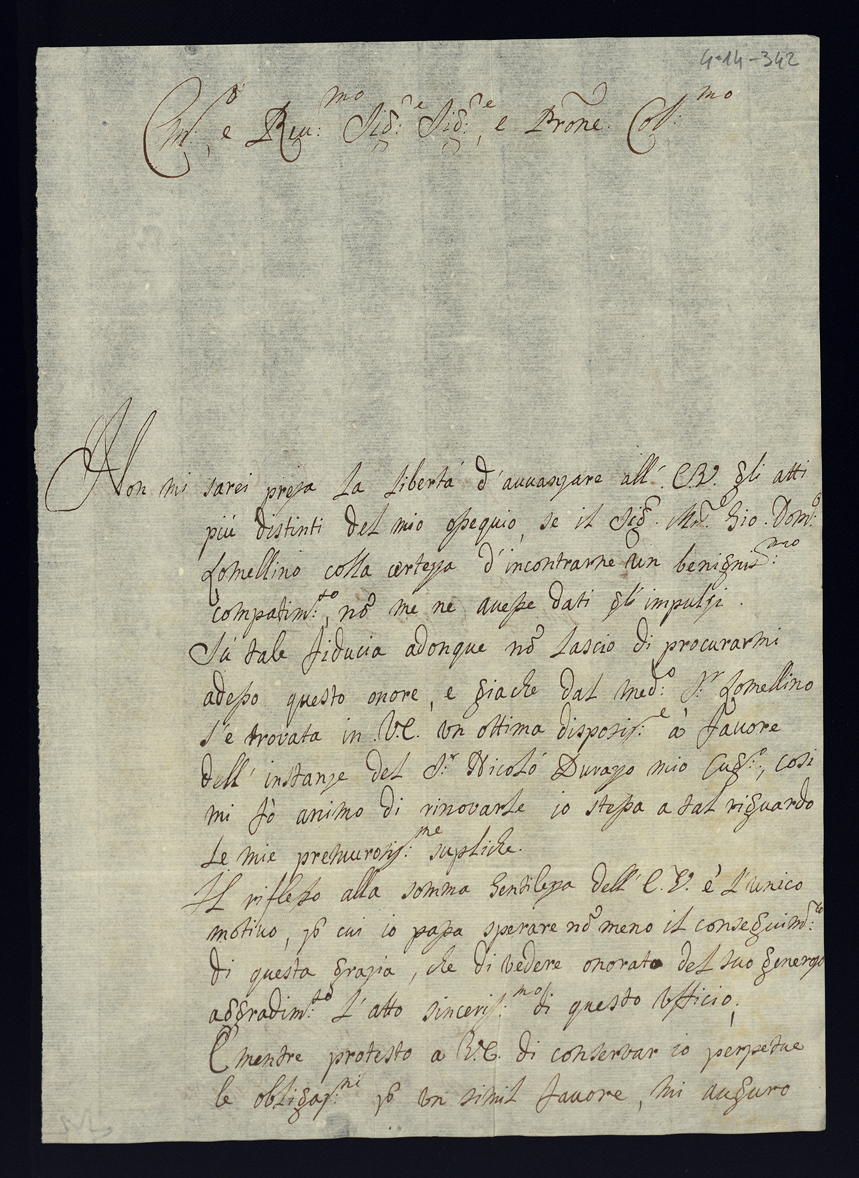 4-14-342
Em.o, e Reu:mo Sig:re Sig:re, e Prone Col:mo
Non mi sarei presa la libertà d'auuanzare all' E.V. gli atti
più distinti del mio ossequio, se il Sig.r Gio. Dom:o
Lomellino colla certezza d'incontrarne un benignis:mo
compatim:to, nõ me ne auesse dati gl'impulsi.
Sù tale fiducia adonque nõ lascio di procurarmi
adesso questo onore, e giache dal med:o S:r Lomellino
s'è trovata in V.E. un ottima disposiz:e à fauore
dell' instanze del S:r Nicolò Durazzo mio Cug:o, così
mi fò animo di rinovarle io stessa a tal riguardo
le mie premurosis:me supliche.
Il riflesso alla somma gentilezza dell' E.V. è l'unico
motiuo, p cui io possa sperare nõ meno il conseguim:to
di questa grazia, che di vedere onorato del suo generoso
aggradim:to l'atto sinceris:mo di questo Vfficio,
E mentre protesto a V.E. di conservar io perpetue
le obligaz:ni p un simil fauore, mi auguro